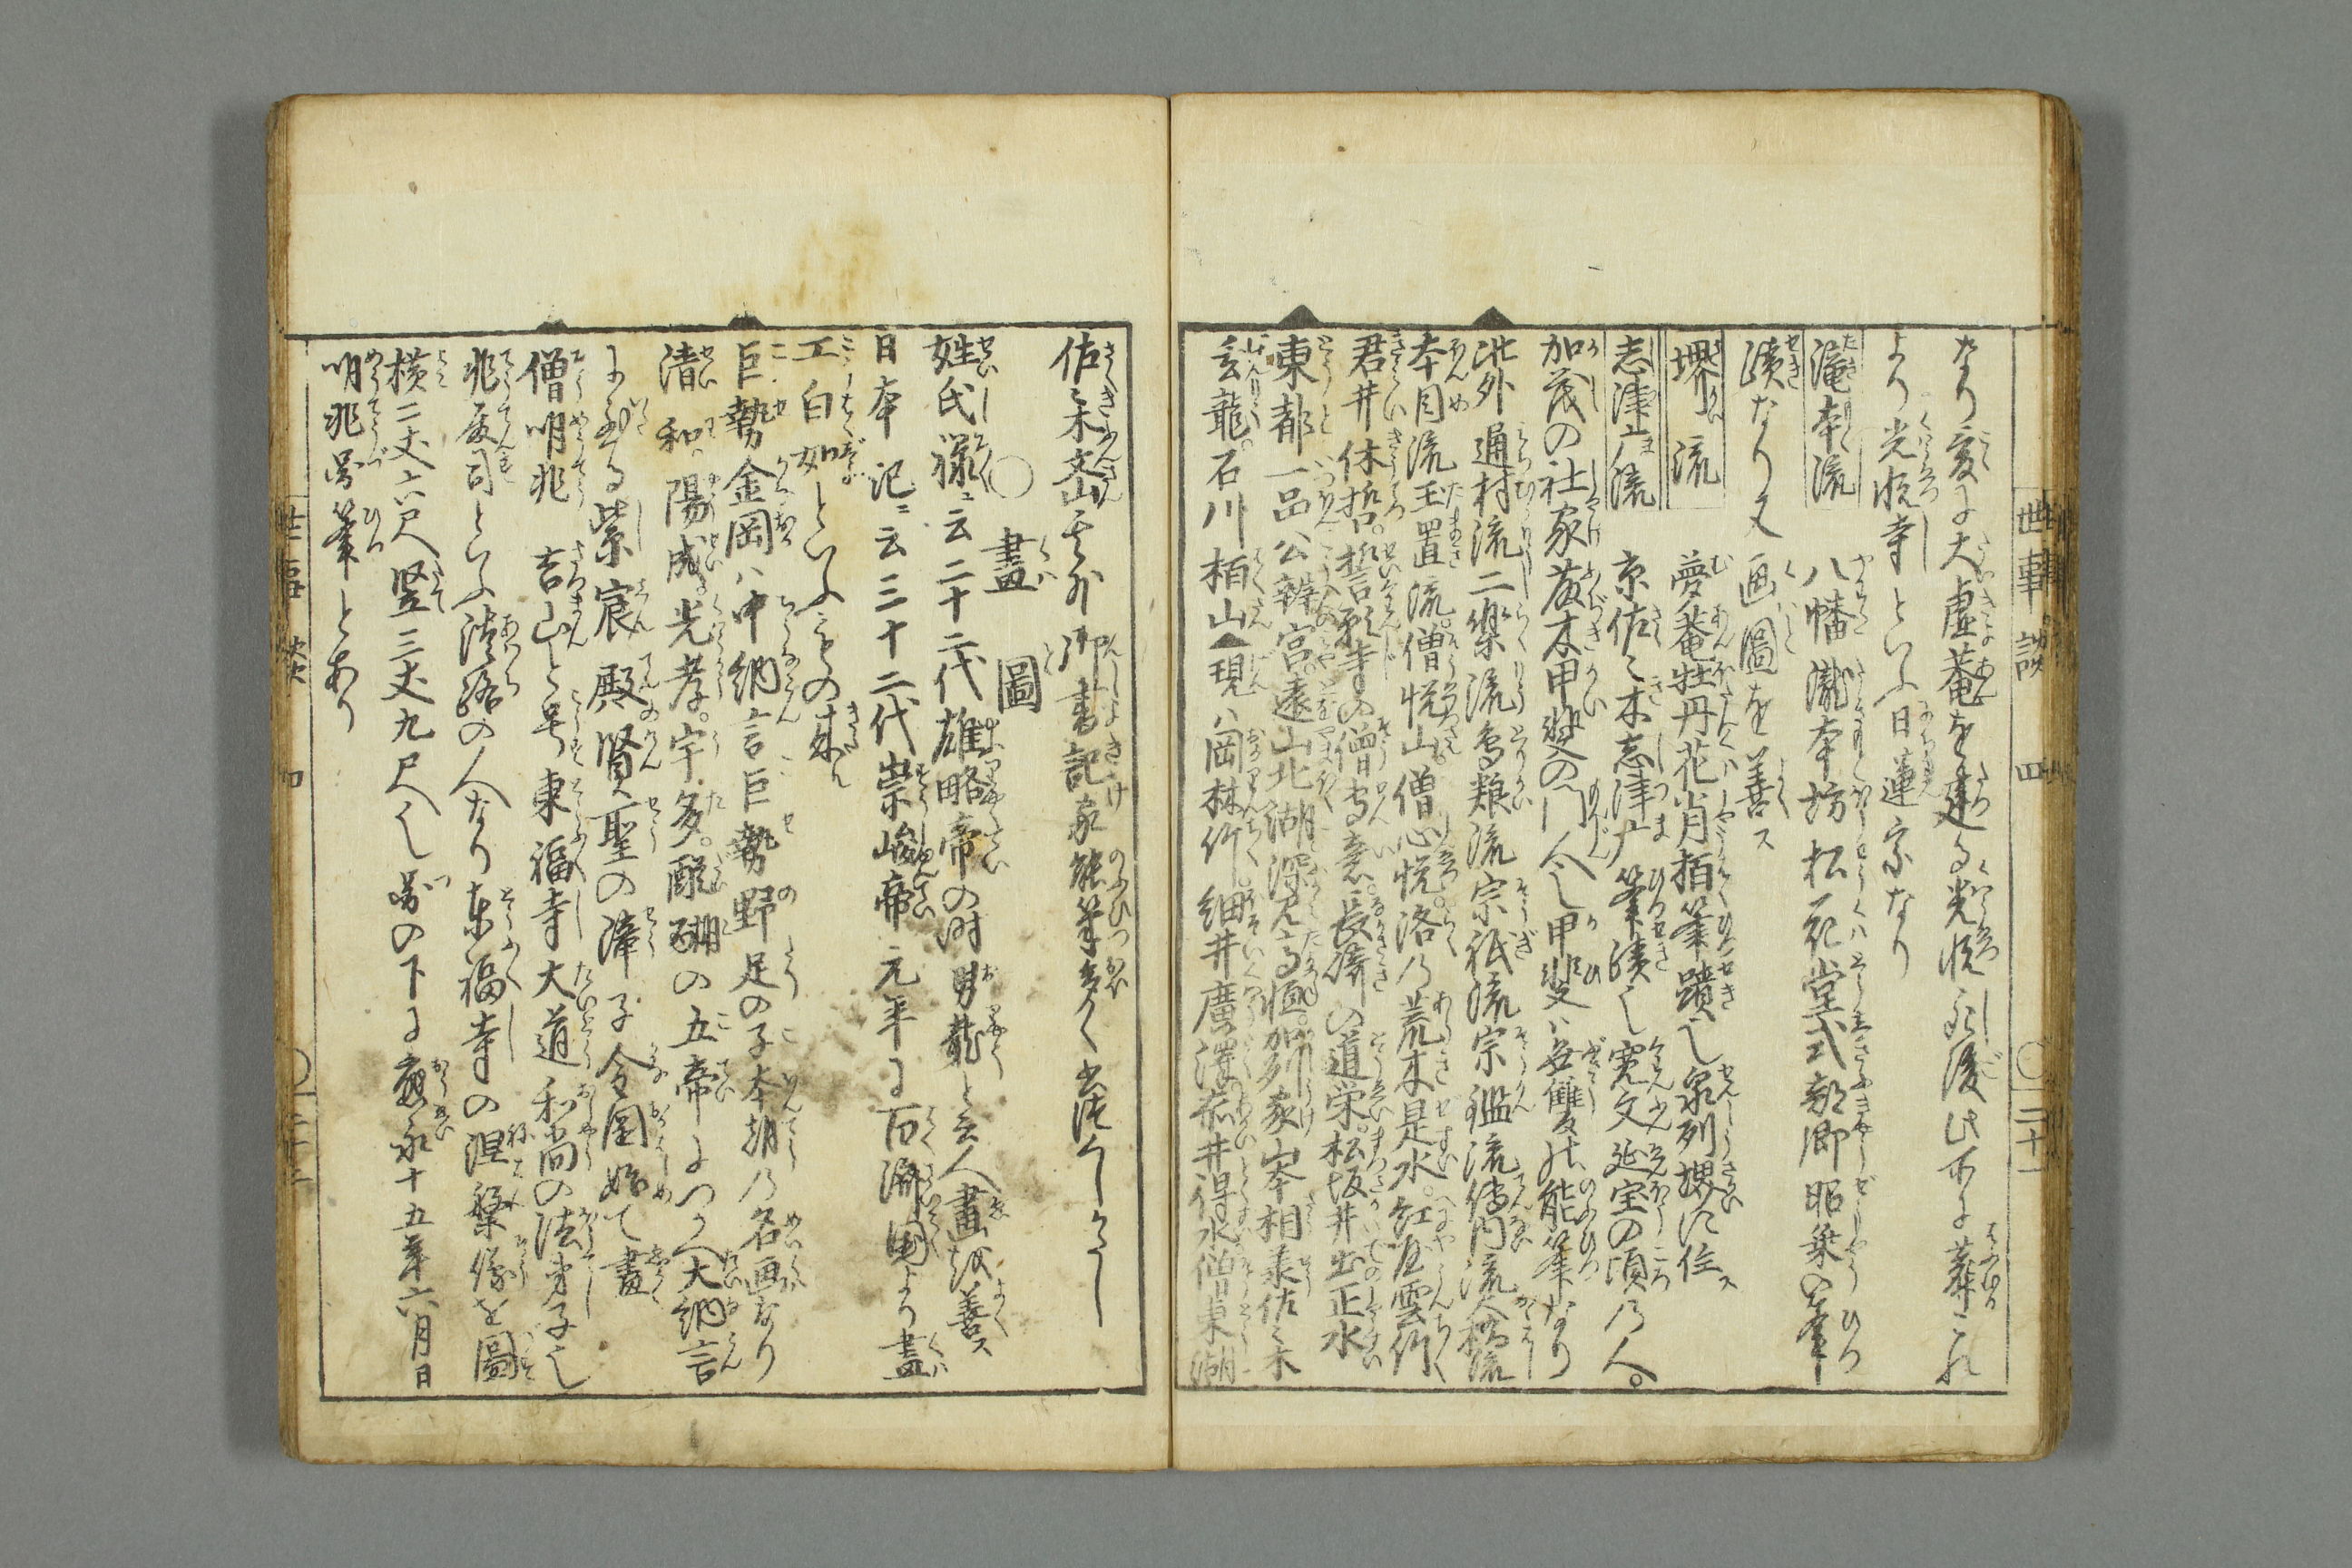 世事談 四 〇二十一
なり爰に大虚菴を建る光悦死後此所に葬これ
より光悦寺といふ日蓮宗なり
滝本流 八幡瀧本坊松花堂式部卿昭乗の筆
蹟なり又画圖を善ス
堺流 夢菴牡丹花肖栢筆蹟也泉州堺に住ス
志津广流 京佐〻木志津广筆蹟也寛文延宝の頃の人。
加茂の社家藤木甲斐の門人也甲斐ハ無雙の能筆なり
此外通村流二樂流鳥飼流宗祇流宗鑑流傳内流大橋流
本目流玉置流。僧悦山。僧心悦。洛の荒木是水。紅屋雲竹
君井休哲。誓願寺の僧専意。長嶠の道栄。松坂井出正水
東都一品公辨宮。遠山北湖。深見高恒。加州家山本相乗佐〻木
玄龍。石川栢山▲現ハ岡林竹。細井廣澤。荒井得水。僧東湖
佐〻木文山其外御書記家能筆多く出諸くし〻るし
〇畫圖
姓氏禄ニ云二十二代雄略帝の時男龍と云人畫を善ス
日本記ニ云三十二代崇峻帝元年に百濟国より畫
工白如といふもの来ル
巨勢金岡ハ中納言巨勢野足の子本朝の名画なり
清和。陽成。光孝。宇多。醍醐の五帝につかへ大納言
に至る紫宸殿賢聖の障子金岡始て畫
僧明兆 吉山と号東福寺大道和尚の法弟子也
兆殿司といふ淡路の人なり東福寺の涅槃像を圖
横二丈六尺竪三丈九尺也圖の下に應永十五年六月日
明兆圖筆とあり